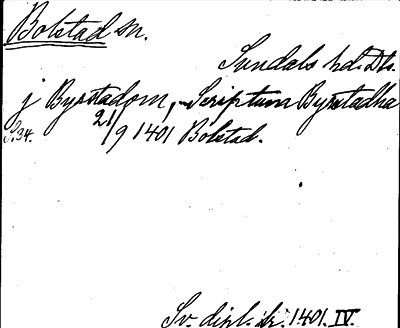 Bolstad sn.
Sundals hd. Dls.
j Byrstadom, - Scriptum Byrstadha
S.34. 21/9 1401 Bolstad.
Sv. dipl. fr. 1401. IV.